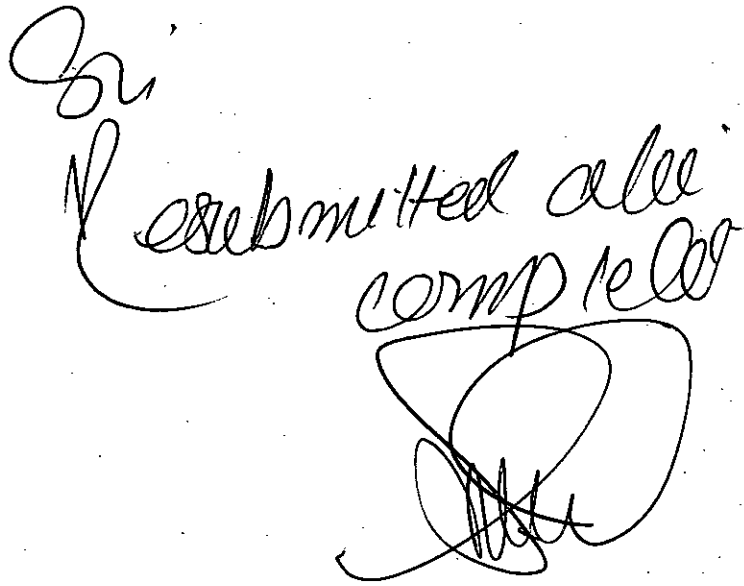 Sir
Resubmitted after
completed